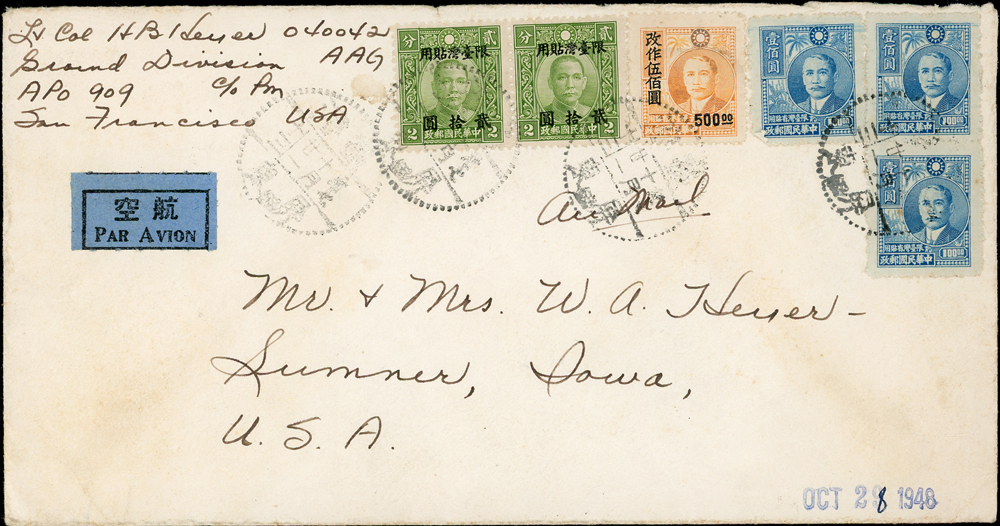 Lt Col H B Heyer 040042
Ground Division AAG
APO 909 c/o Pm
San Francisco USA
分 貳
限臺灣貼用
貳拾圓
2 中華民國郵政 2
分 貳
限臺灣貼用
貳拾圓
2 中華民國郵政 2
改作伍佰圓
500.00
壹佰圓
限臺灣省貼用
中華民國郵政
100.00
壹佰圓
限臺灣省貼用
中華民國郵政
100.00
壹佰圓
限臺灣省貼用
中華民國郵政
100.00
航空
PAR AVION
Air Mail
Mr. + Mrs. W. A. Heyer -
Sumner, Iowa,
U. S. A.
OCT 28 1948